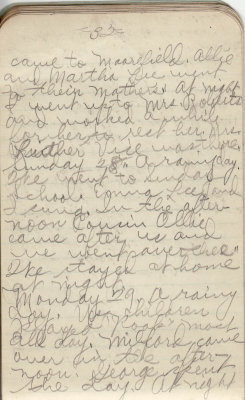 -32-
came to Moorefield. Allie
and Martha Lee went
to their Mothers. At night
I went up to Mrs.
and worked a while
for her to rest her. Mrs.
was there.
Sunday 28" A rainy day.
We went to Sunday
School. Emma Lee and
I sung. In the after-
noon Cousin Ollie
came after us and
we went over
We stayed at home
at night.
Monday 29. A rainy
day. children
played "rook" most
all day. came
over in the after-
noon. George spent
the day. At night